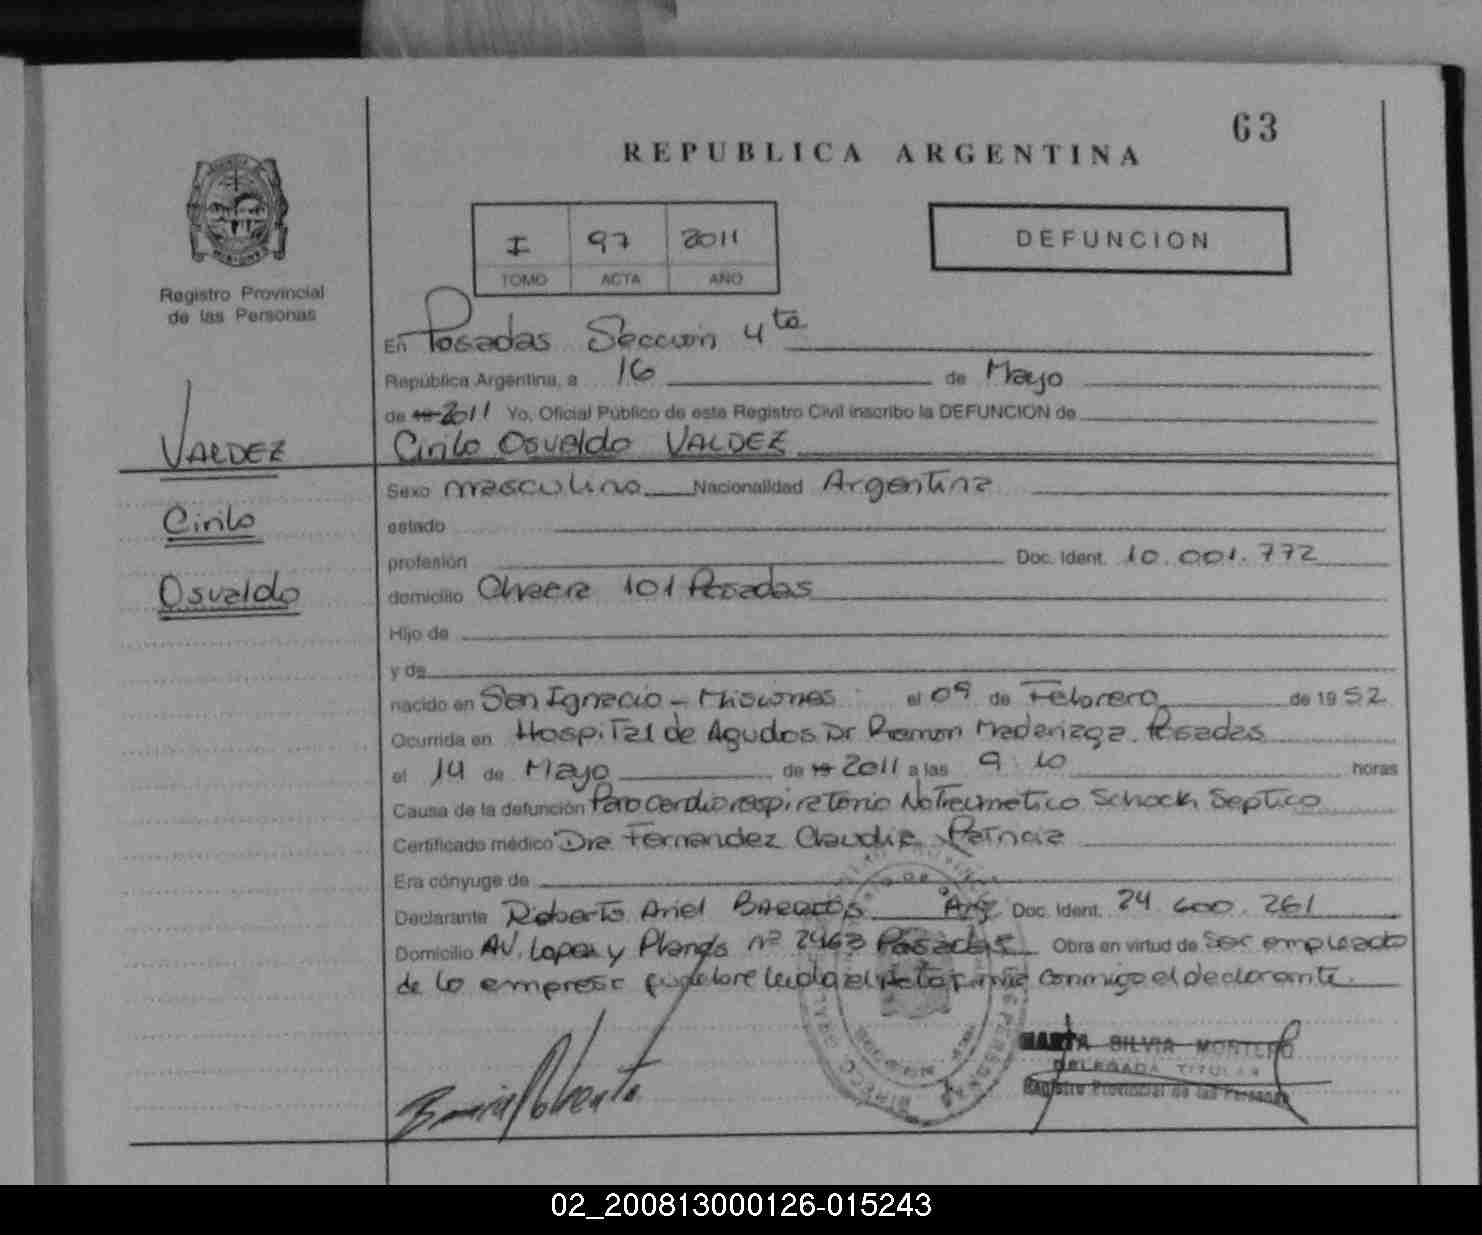 63
REPUBLICA ARGENTINA
I 97 2011
TOMO ACTA AÑO
DEFUNCION
Registro Provincial
de las Personas
VALDEZ
Cirilo
Osvaldo
En Posadas Sección 4ta
República Argentina, a 16 de Mayo
de 19 2011 Yo, Oficial Público de este Registro Civil inscribo la DEFUNCION de
Cirilo Osvaldo VALDEZ
Sexo masculino Nacionalidad Argentina
estado
profesión Doc. Ident. 10.001.772
domicilio Chacra 101 Posadas
Hijo de
y de
nacido en San Ignacio - Misiones el 09 de Febrero de 1952
Ocurrida en Hospital de Agudos Dr Ramon Madariaga. Posadas
el 14 de Mayo de 19 2011 a las 9:10 horas
Causa de la defunción Paro Cardiorespiratorio No Traumatico Schock Septico
Certificado médico Dra Fernandez Claudia Patricia
Era cónyuge de
Declarante Roberto Ariel Arg Doc. Ident. 24.600.261
Domicilio AV. Lopez y Planes nº 2463 Posadas Obra en virtud de Ser empleado
de la empresa funebre leida el Acta firma conmigo el declarante.
MARTA SILVIA MONTERO
DELEGADA TITULAR
Registro Provincial de las Personas
02_200813000126-015243